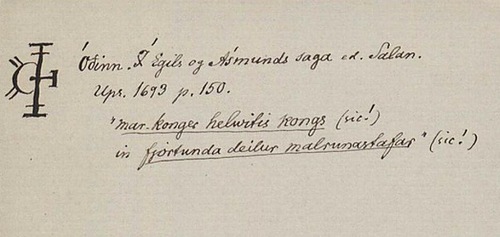 Óðinn. Í Egils og Asmunds saga ed. Salan.
Ups. 1693 p. 150.
"mar-konger helwitis kongs (sic!)
in fjortunda deilur malrunastafar" (sic!)